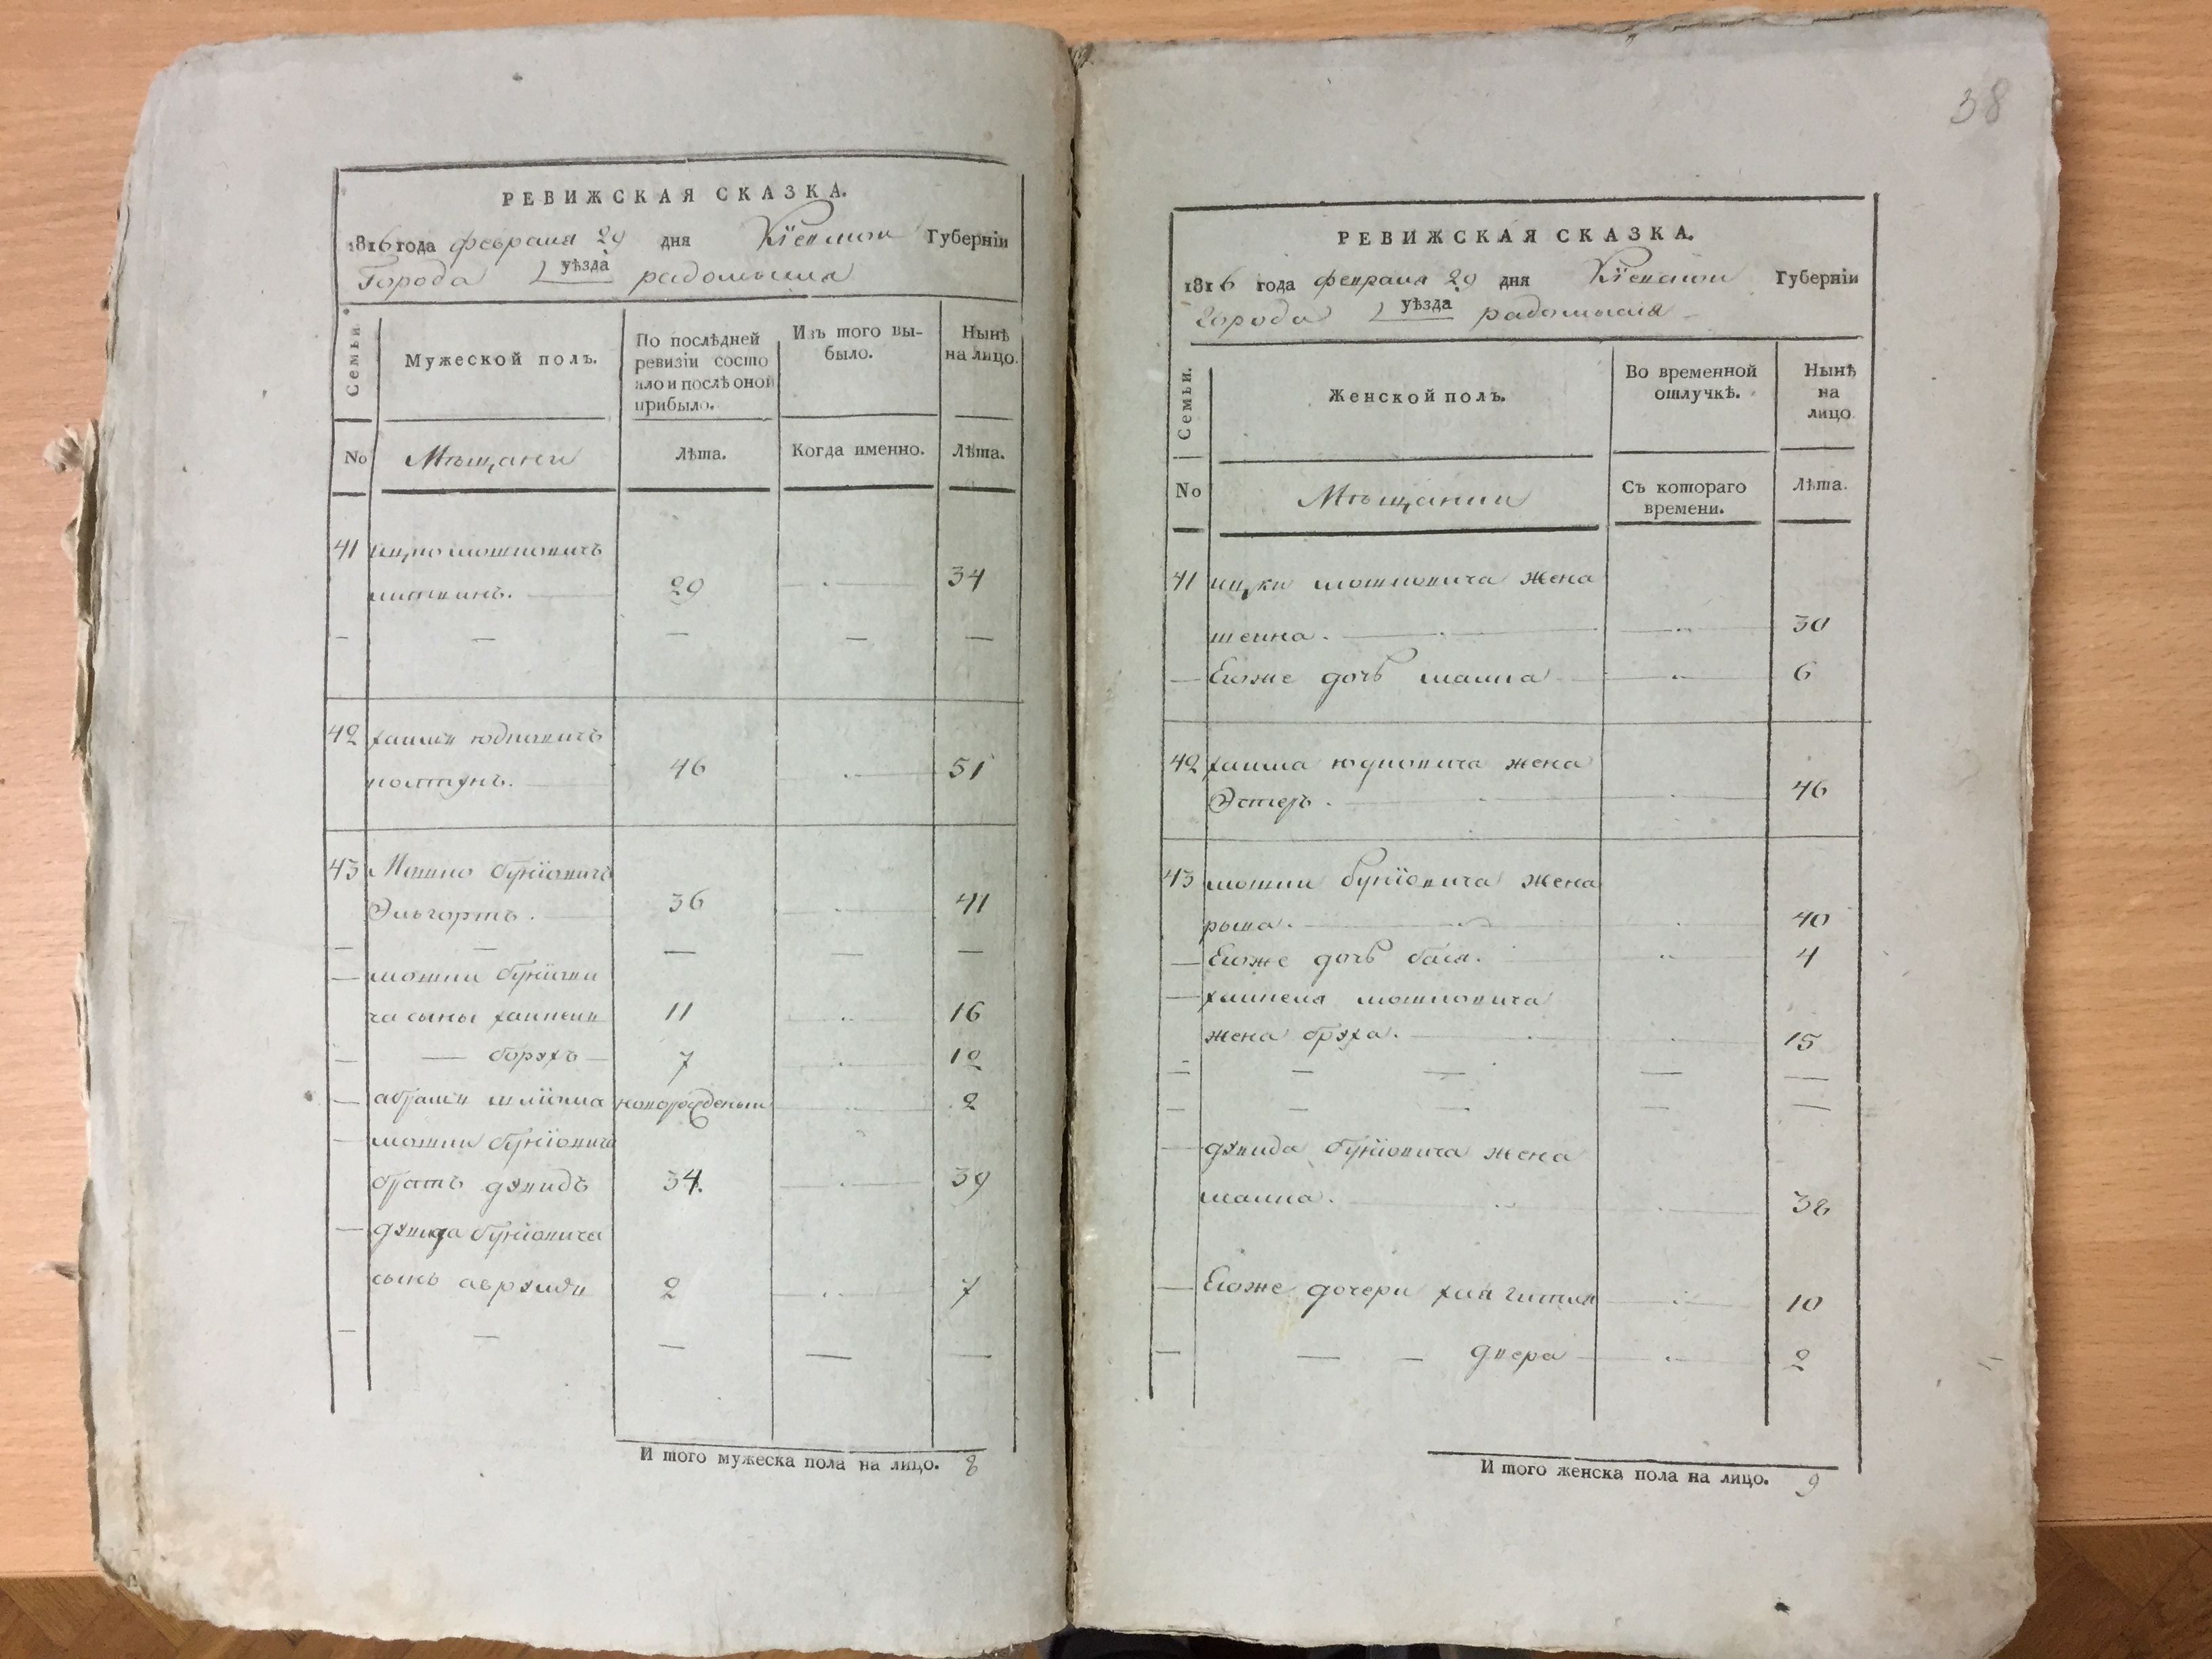 РЕВИЖСКАЯ СКАЗКА.
1816 года февраля 29 дня Кіевской Губерніи
Города уѣзда радомысля
Семьи
Мужеской полъ.
По послѣдней ревизіи состо
яло и послѣ оной прибыло.
Изъ того вы-
было.
Нынѣ
на лицо.
No Мѣщани Лѣта. Когда именно. Лѣта.
41 ицко мошковичъ
29 34
42 хаимъ юдковичъ
46 51
43 Мошко бунїовичъ
Эльгортъ. 36 41
мошки бунїови
ча сыны 11 16
борухъ 7 12
абрамъ новорожденый 2
мошки бунїовича
братъ дувидъ 34. 39
дувида бунїовича
сынъ 2 7
И того мужеска пола на лицо. 8
38
РЕВИЖСКАЯ СКАЗКА.
1816 года февраля 29 дня Кіевской Губерніи
города уѣзда радомысля
Семьи.
Женской полъ.
Во временной
отлучкѣ.
Нынѣ
на
лицо
No Мѣщанки Съ котораго
времени. Лѣта.
41 ицки мошковича жена
шейна. 30
Егоже дочь малка 6
42 хаима юдковича жена
Эстеръ. 46
43 мошки бунїовича жена
40
Егоже дочь бася. 4
мошковича
жена бруха. 15
дувида бунїовича жена
малка. 38
Егоже дочери 10
двера 2
И того женска пола на лицо. 9